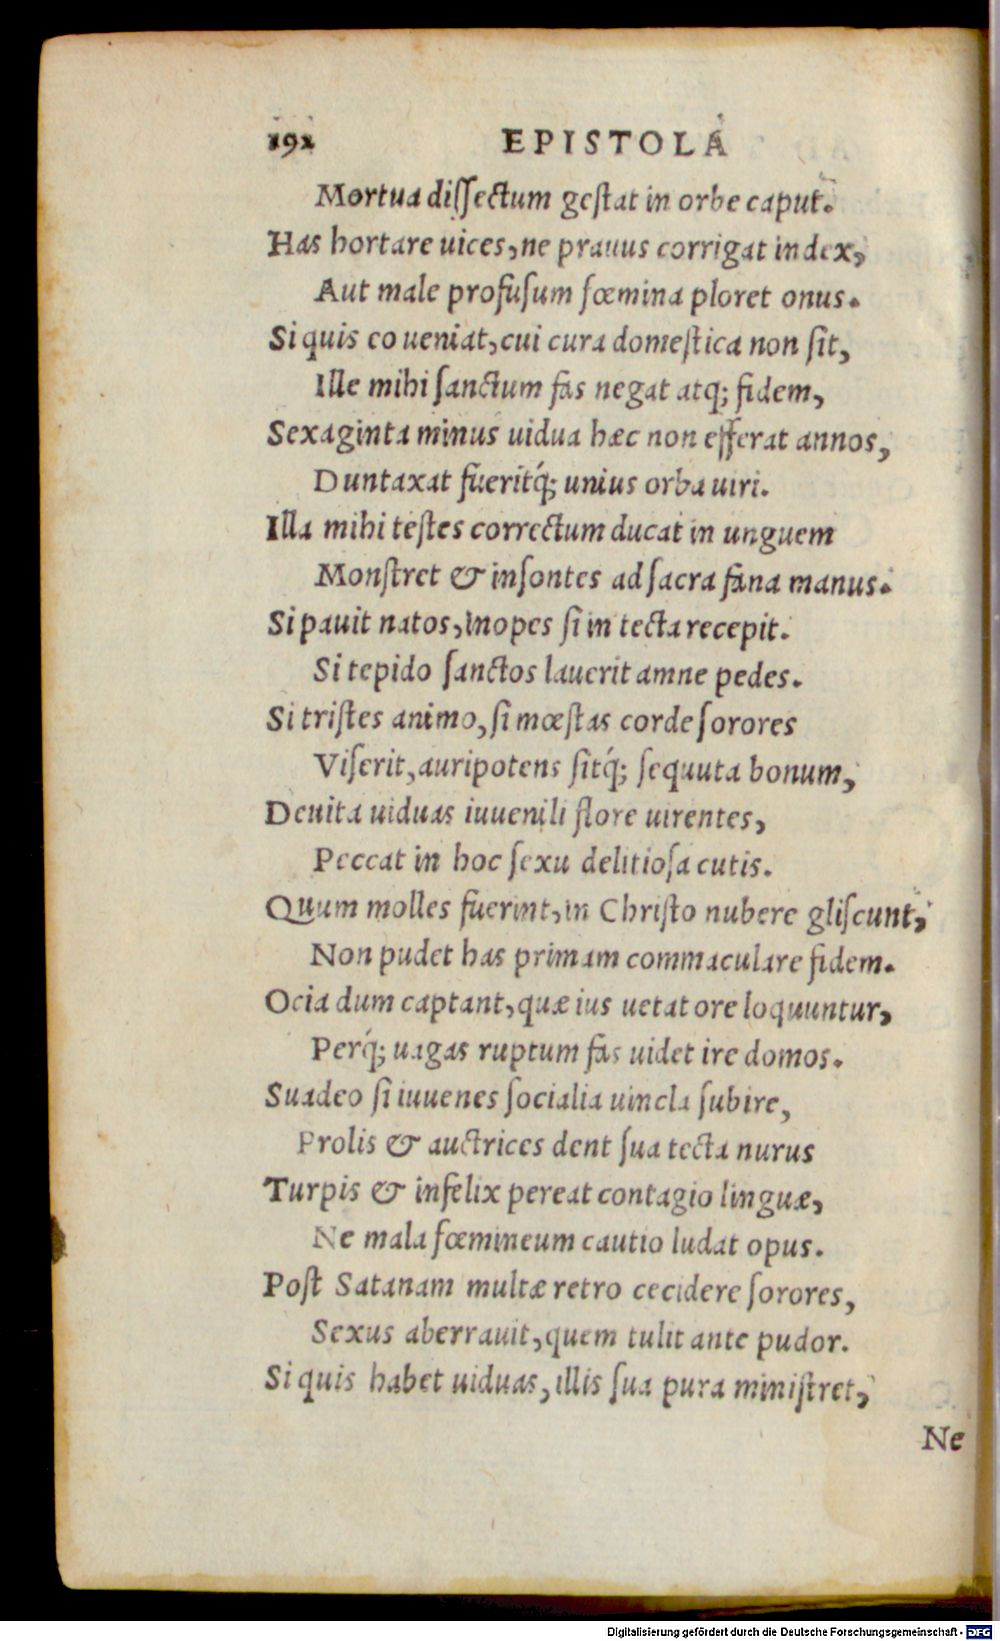 192 EPISTOLA
Mortua diſſectum geſtat in orbe caput.
Has hortare uices, ne prauus corrigat index,
Aut male profuſum fœmina ploret onus.
Si quis eo ueniat, cui cura domeſtica non ſit,
Ille mihi ſanctum fas negat atq; fidem,
Sexaginta minus uidua hæc non efferat annos,
Duntaxat fueritq́; unius orba uiri.
Illa mihi teſtes correctum ducat in unguem
Monſtret & inſontes ad ſacra fana manus.
Si pauit natos, inopes ſi in tecta recepit.
Si tepido ſanctos lauerit amne pedes.
Si triſtes animo, ſi mœſtas corde ſorores
Viſerit, auripotens ſitq́; ſequuta bonum,
Deuita uiduas iuuenili flore uirentes,
Peccat in hoc ſexu delitioſa cutis.
Quum molles fuerint, in Chriſto nubere gliſcunt,
Non pudet has primam commaculare fidem.
Ocia dum captant, quæ ius uetat ore loquuntur,
Perq́; uagas ruptum fas uidet ire domos.
Suadeo ſi iuuenes ſocialia uincla ſubire,
Prolis & auctrices dent ſua tecta nurus
Turpis & infelix pereat contagio linguæ,
Ne mala fœmineum cautio ludat opus.
Poſt Satanam multæ retro cecidere ſorores,
Sexus aberrauit, quem tulit ante pudor.
Si quis habet uiduas, illis ſua pura miniſtret,
Ne
Digitalisierung gefördert durch die Deutsche Forschungsgemeinschaft - DFG